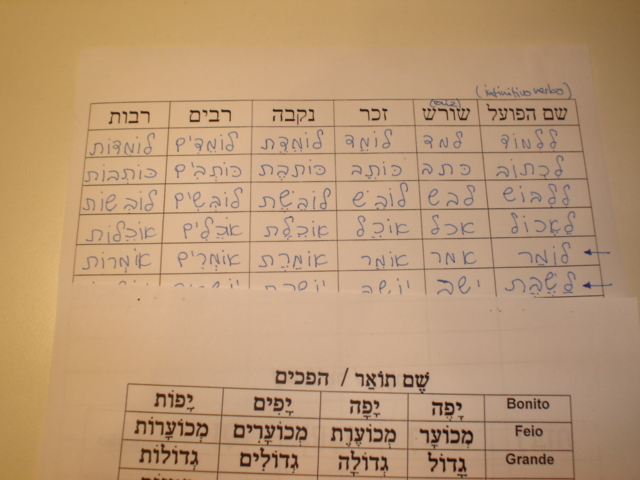 (infinitivo verbo)
שם הפועל שורש זכר נקבה רבים רבות
ללמוד למד לומד לומדת לומדים לומדות
לכתוב כתב כותב כותבת כותבים כותבות
ללבוש לבש לובש לובשת לובשים לובשות
לאכול אכל אוכל אוכלת אוכלים אוכלות
לומר אמר אומר אומרת אומרים אומרות
לשבת ישב
שֶׁם תוֹאַר / הפכים
Bonito יָפֶה יָפָה יָפִים יָפוֹת
Feio מְכוֹעָר מְכוֹעֶרֶת מְכוֹעָרִים מְכוֹעָרוֹת
Grande גָדוֹל גְדוֹלָה גְדוֹלִים גְדוֹלוֹת